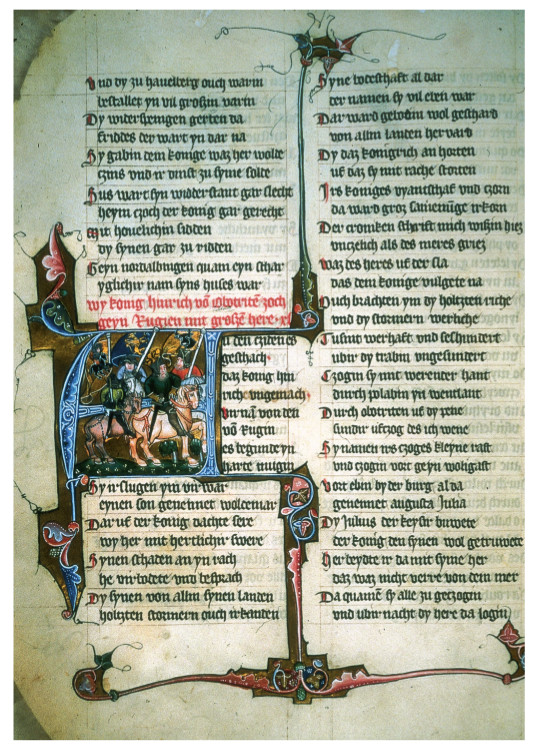 Vnd dy zu hauelberg ouch warin
bestaller yn vil groszin varin
Dy widerspenigen gerten da
friddes der wart yn dar na
Sy gabin dem konige waz her wolde
czins vnd ir dinst zu syme solde
Sus wart syn widderstant gar slecht
heym czoch der konig gar gerecht
Mit houelichin sidden
dy synen gar zu ridden
Geyn nordalbingen quam eyn schar
yglichir nam syns huses war
wy konig hinrich võ Obotritẽ zoch
geyn Rugien mit groszẽ here · xl
u den cziden es
geschach
daz konig hin
rich vngemach
vurnã von den
võ Rugin
es begunde yn
harte mugin
Sy irslugen ym vur war
eynen son genennet woldemar
Dar uf der konig dachte sere
wy her mit hertlichir swere
Synen schaden an yn rach
he virbotete vnd besprach
Dy synen von allin synen landen
holtzten stormern ouch irkanden
Syne bodeschaft al dar
der namen sy vil eben war
Dar ward gelobin wol geschard
von allin landen her vard
Dy daz konigrich an horten
uf daz sy mit rache storten
Irs koniges vyantschaf vnd czorn
da ward groz sameninge irkorn
Der croniken schrift mich wisin hiez
vnczelich als des meres griez
waz des heres uf der sla
das dem konige vulgete na
Ouch brachten ym dy holtzten riche
vnd dy stormern werliche
Tusint werhaft vnd seshundert
ubir dy trabin vngesundert
Czogin sy mit werender hant
durch polabin yn wentlant
Durch obotriten uf dy pene
sundir ufczog des ich wene
Sy namen irs czoges kleyne rast
vnd czogin vort geyn wolgast
Vort ebin by der burg al da
genennet augusta Julia
Dy Julius der keysir buwete
der konig den synen wol getruwete
Her beydte ir da mit syme her
daz waz nicht verre von dem mer
Da quamẽ sy alle zu geczogin
vnd ubir nacht dy here da login